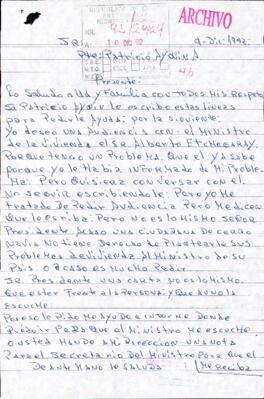 ARCHIVO
92/29424
10 DIC 92
Sr.
9-Dic-1992.
Pte: Patricio Aylwin A
Presente
Lo Saludo a Ud y Familia con todos mis Respetos
Sr Patricio Aylwin le escribo estas lineas
para Pedirle Ayuda: por lo siguiente:
Yo deseo una Audiencia con el Ministro
de la Vivienda el Sr Alberto Etchegaray.
Porque tengo un Problema. Que el ya sabe
porque yo le Habia informado de mi Proble-
ma: Pero Quisiera conversar con el.
No seguir escribiendole: Pero yo He
tratado de Pedir Audiencia Pero me dicen
Que le escriba: Pero no es lo mismo Señor
Presidente Acaso una ciudadana de Cerro
Navia No tiene Derecho de Plantearle sus
Problemas de Vivienda Al Ministro de su
Pais o Acaso es mucho Pedir.
Sr. Presidente una carta no es lo mismo.
Que estar Frente a la Persona: y Que a uno la
escuche.
Por eso le Pido me Ayude e informe Donde
Puedo ir Para Que el Ministro me escuche.
o usted mande a mi Direccion una nota
Para el Secretario Del Ministro Para Que el
me Reciba
De ante mano le Saluda.